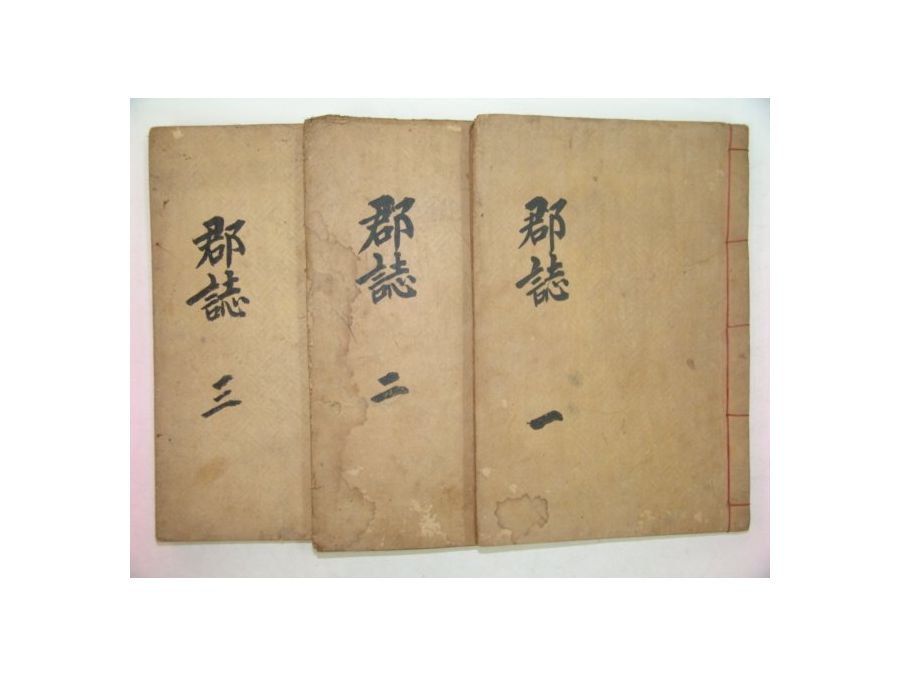 郡誌 一
郡誌 二
郡誌 三